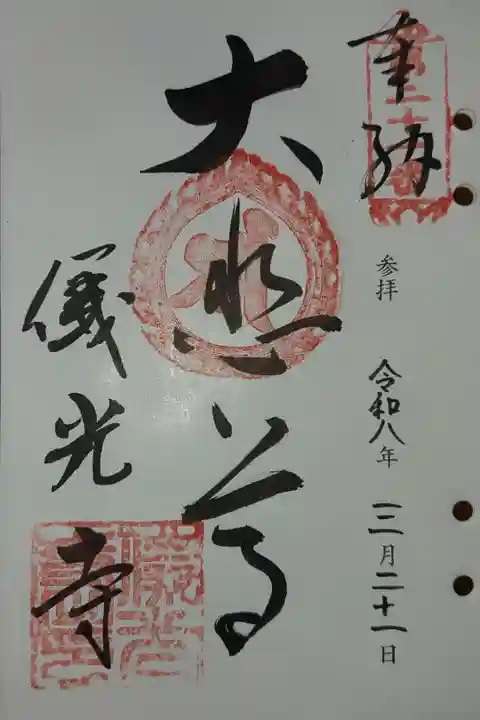 奉納
参拝 令和八年 三月二十一日
大悲尊
儀光寺